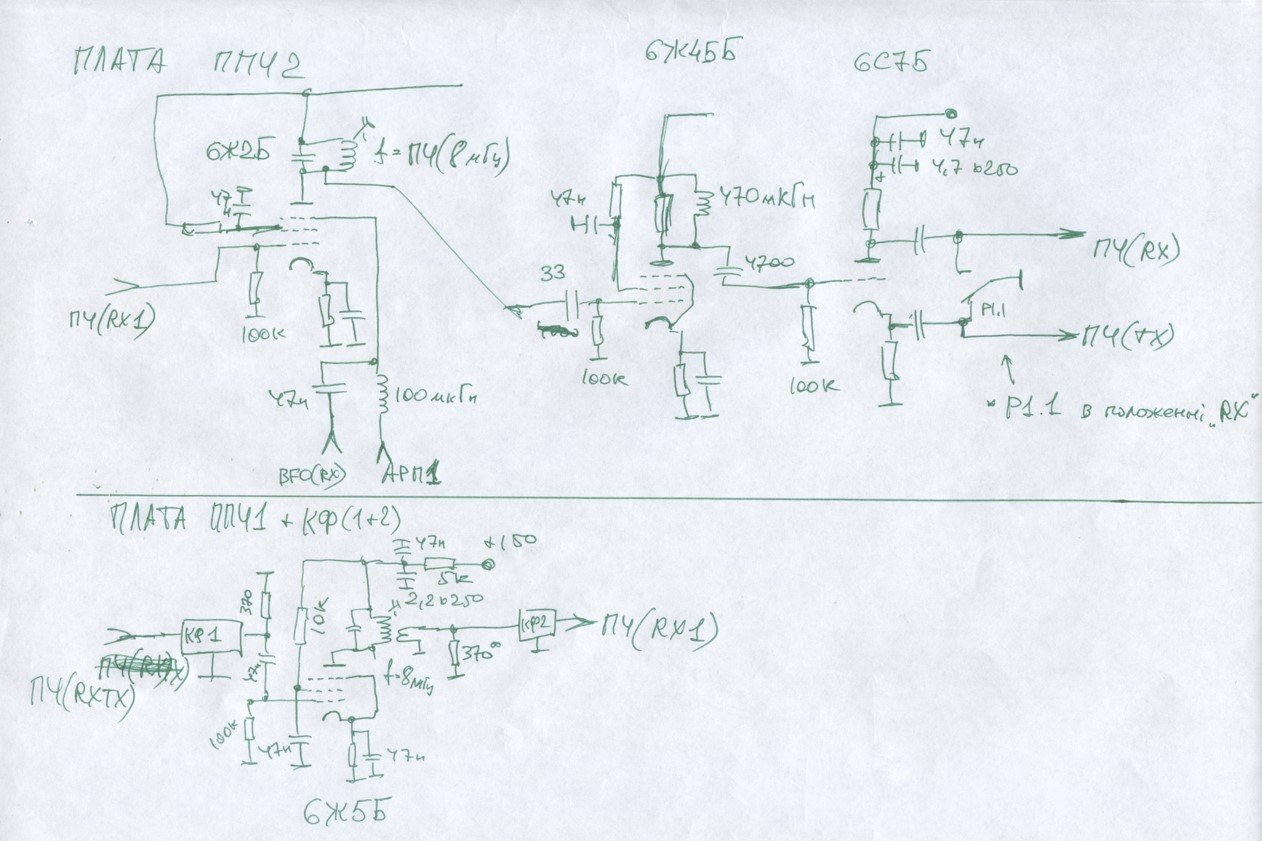 ПЛАТА ППЧ2
6Ж45Б
6С7Б
6Ж2Б
f=ПЧ(8мГц)
47н
47н
470мкГн
47н
4,7 в250
+
33
4700
ПЧ(RX)
ПЧ(RX1)
100к
100к
100к
P1.1
ПЧ(TX)
47н
100мкГн
"P1.1 в положенні „RX"
BFO(RX)
АРП1
ПЛАТА ППЧ1 + КФ(1+2)
47н
+150
5к
2,2 в250
370
10к
КФ1
КФ2
ПЧ(RX1)
370
47н
f=8мГц
ПЧ(RXTX)
100к
47н
47н
6Ж5Б